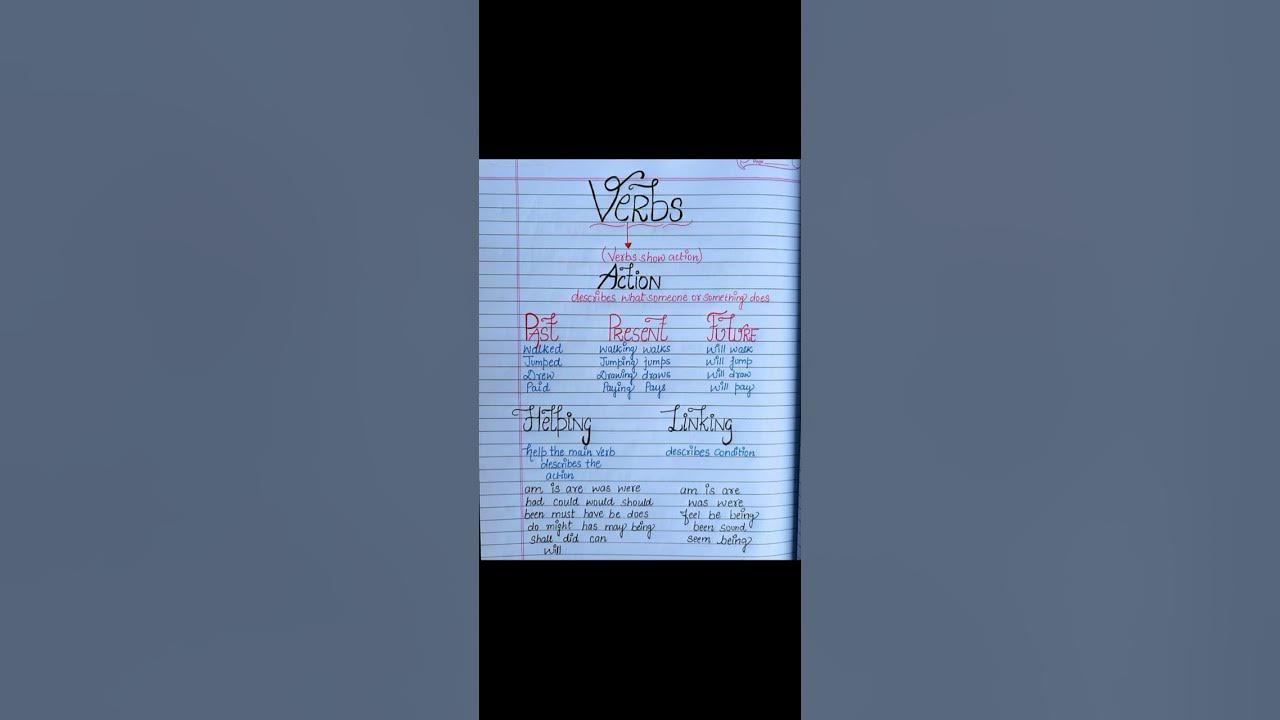 Verbs
(Verbs show action)
Action
describes what someone or something does
Past Present Future
walked walking walks will walk
Jumped Jumping jumps will jump
Drew Drawing draws will draw
Paid Paying Pays will pay
Helping Linking
help the main verb describes condition
describes the
action
am is are was were am is are
had could would should was were
been must have be does feel be being
do might has may being been sound
shall did can seem being
will